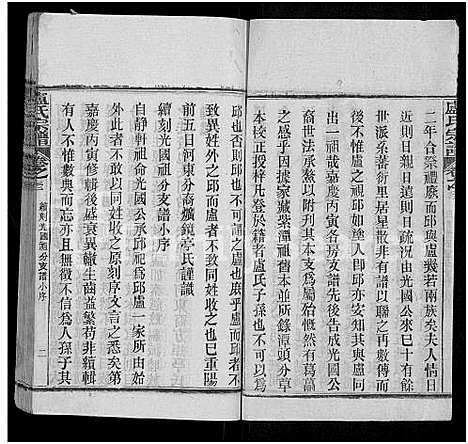 盧氏宗譜
二年合祭禮廢而邱與盧幾若兩族矣夫人情日
近則日親日遠則日疏况由光國公來已十有餘
世派系蕃衍星居星散非有譜以聯之再數傳而
後邱之視盧盧之視邱亦如塗人即邱亦安知其與盧
出一祖哉嘉慶丙寅房支子孫等後先告成光國公
裔世法承鰲以附刊其支為屬殆慨然有葛藟
之感乎因據家藏紫潭祖舊本並所錄潭頭分草
本校正授梓凡登於籍者盧氏子孫不化久不為
邱也否則邱也不可謂之盧也麻乎盧而邱者不
致異姓外之邱而盧者不致同姓收之也已重陽
前五日河東分裔嬪鏡亭氏謹識
續刻光國祖分支譜小序
自靜軒祖命光國公承邱祀為邱盧一家所由始
外此者不得以同姓收之原刻序文言之悉矣第
嘉慶丙寅修輯後盛衰異轍生齒益繁苟非續輯
有人不惟數典而忘亦且無徵不信為人孫子其
盧氏宗譜
續刻光國祖分支譜小序
二